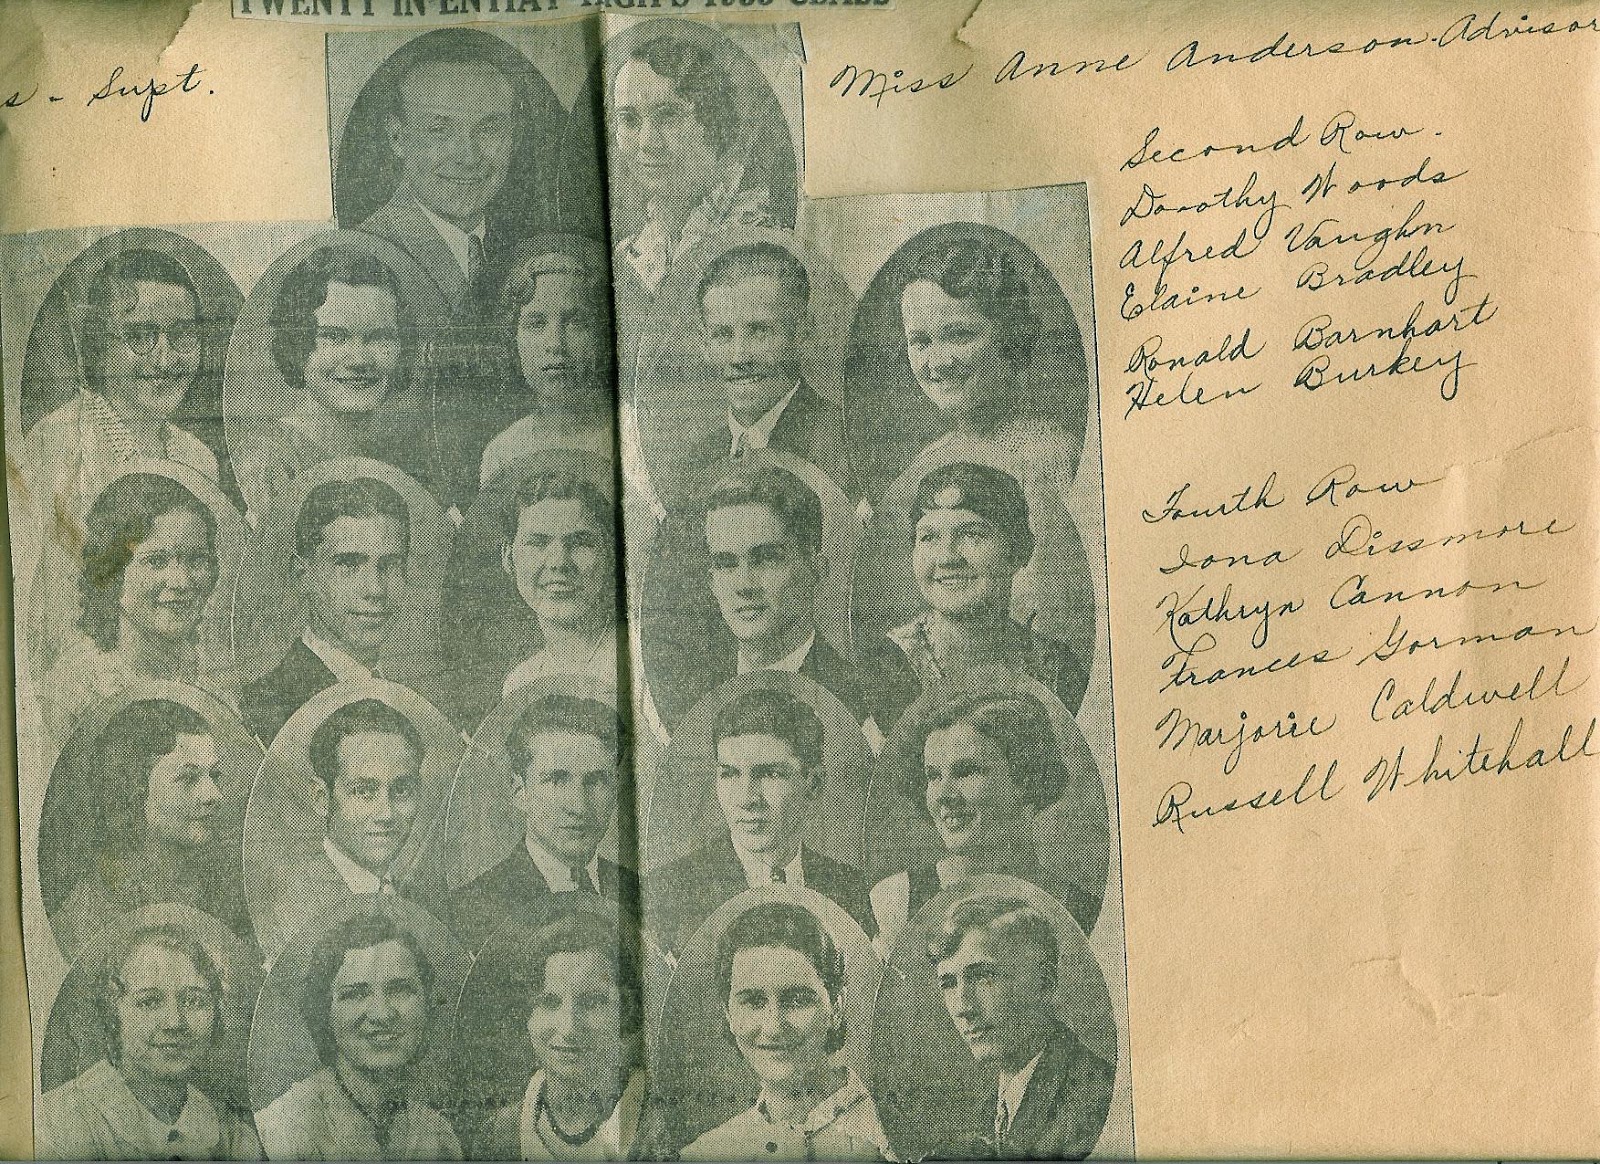 TWENTY IN ENTIAT HIGH'S 1933 CLASS
s - Supt.
Miss Anne Anderson - Advisor
Second Row.
Dorothy Woods
Alfred Vaughn
Elaine Bradley
Ronald Barnhart
Helen Burkey
Fourth Row
Iona Dissmore
Kathryn Cannon
Frances Gorman
Marjorie Caldwell
Russell Whitehall